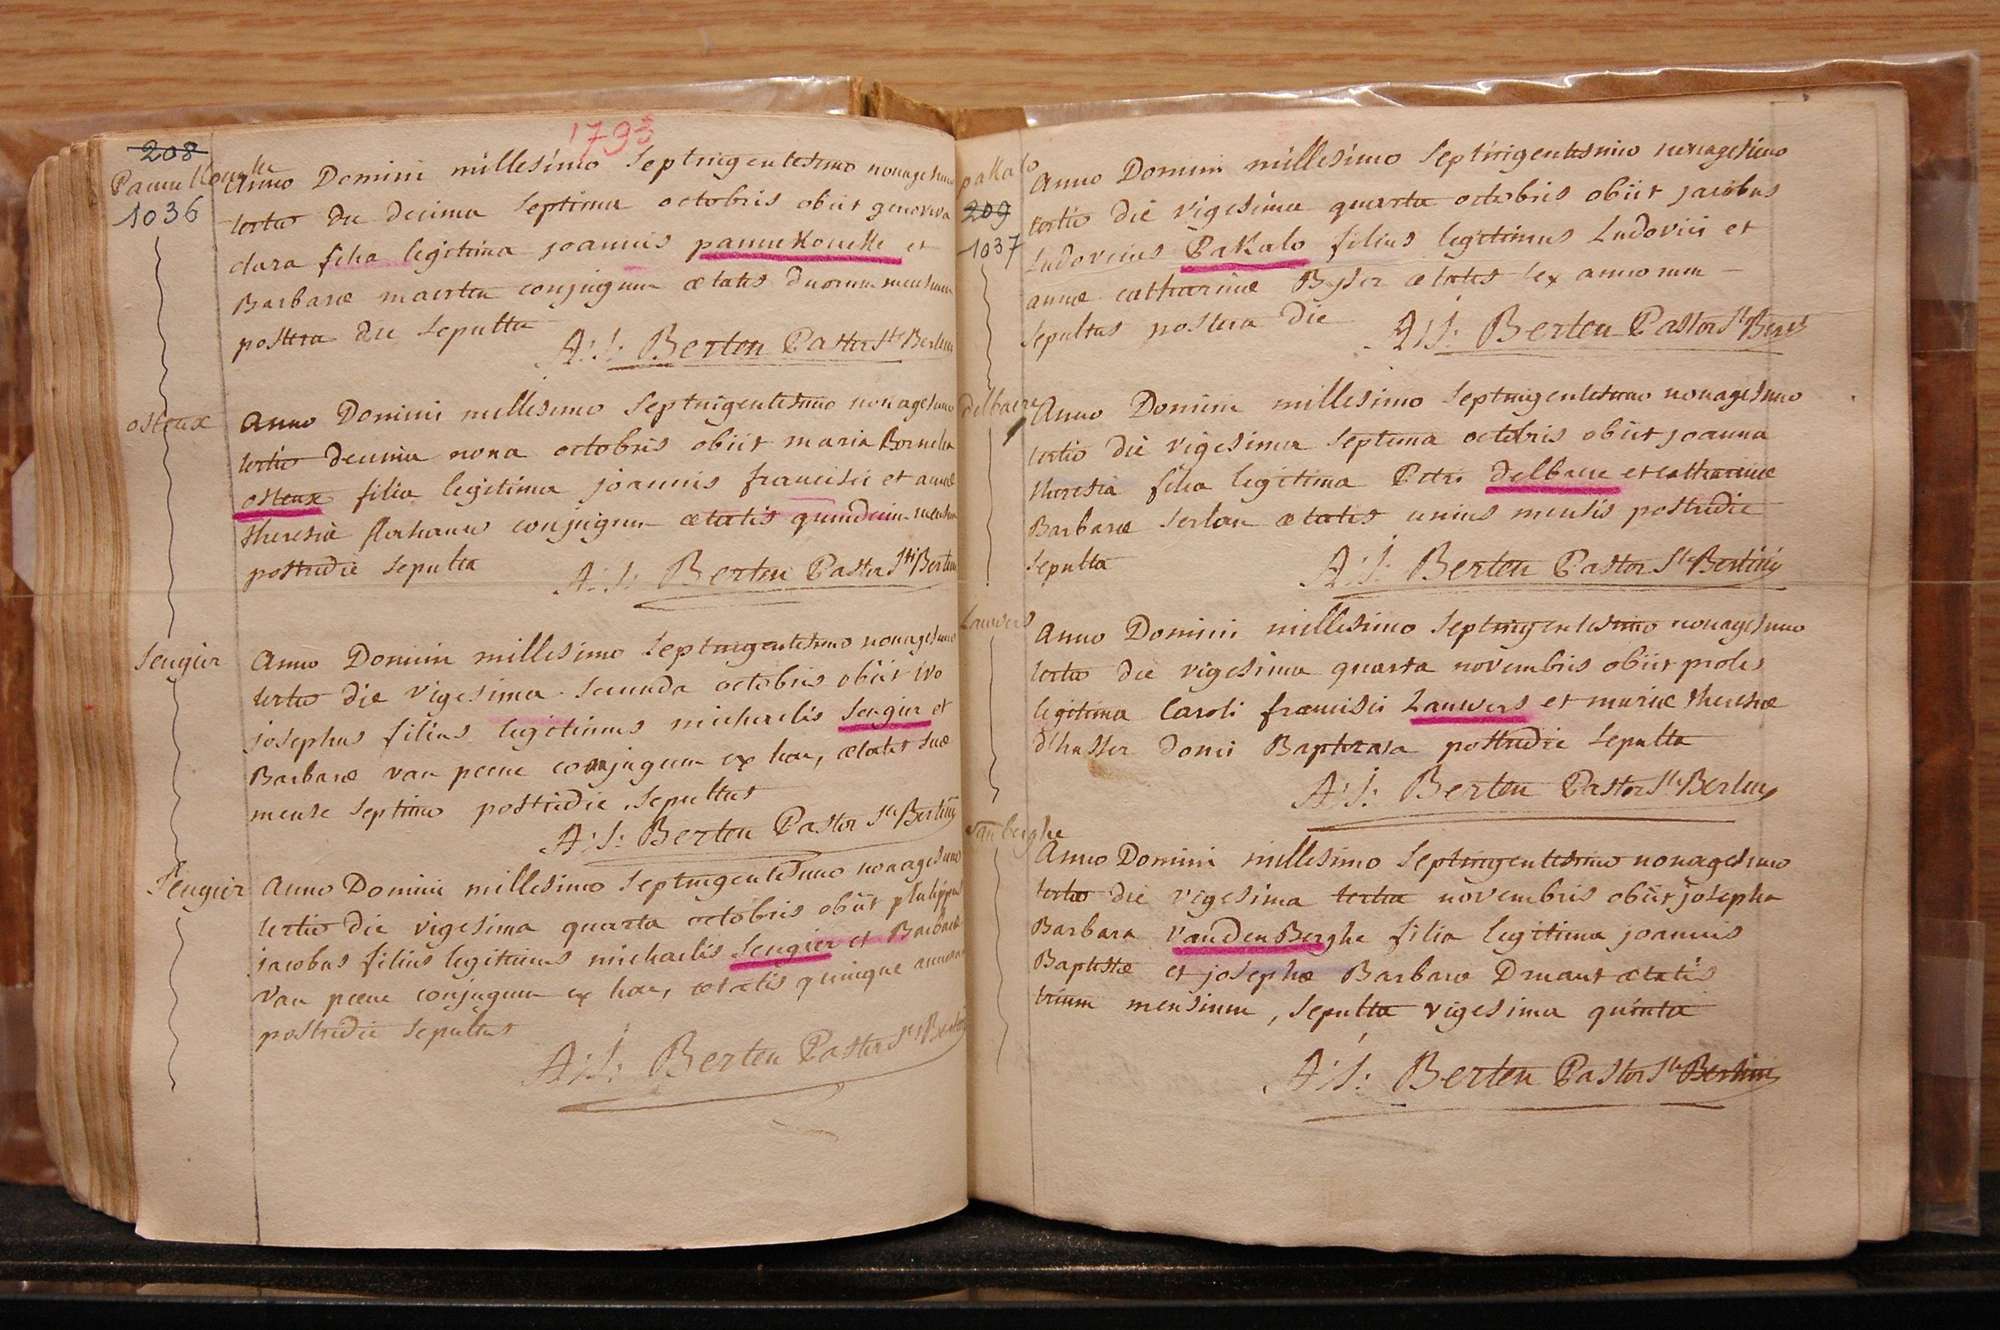 1793
208
Pannekoucke
1036
Anno Domini millesimo Septingentesimo nonagesimo
tertio die decima Septima octobris obiit genoveva
clara filia legitima joannis pannekoucke et
Barbaræ maerten conjugum ætatis duorum mensium
postera die Sepulta
A: J: Berten Pastor Sti Bertini
osteux
Anno Domini millesimo Septingentesimo nonagesimo
tertio decima nona octobris obiit maria Cornelia
osteux filia legitima joannis francisci et annæ
theresiæ conjugum ætatis quindecim mensium
postridie Sepulta
A: J: Berten Pastor Sti Bertini
Sengier
Anno Domini millesimo Septingentesimo nonagesimo
tertio die vigesima Secunda octobris obiit ivo
josephus filius legitimus michaelis Sengier et
Barbaræ van peene conjugum ex hac, ætatis Suæ
mense Septimo postridie Sepultus
A: J: Berten Pastor Sti Bertini
Sengier
Anno Domini millesimo Septingentesimo nonagesimo
tertio die vigesima quarta octobris obiit philippus
jacobus filius legitimus michaelis Sengier et Barbaræ
van peene conjugum ex hac, ætatis quinque annorum
postridie Sepultus
A: J: Berten Pastor Sti Bertini
pakalo
209
1037
Anno Domini millesimo Septingentesimo nonagesimo
tertio die vigesima quarta octobris obiit jacobus
Ludovicus Pakalo filius legitimus Ludovici et
annæ catharinæ ætatis Sex annorum
Sepultus postera die
A: J: Berten Pastor Sti Berti
delbaere
Anno Domini millesimo Septingentesimo nonagesimo
tertio die vigesima Septima octobris obiit joanna
theresia filia legitima Petri delbaere et catharinæ
Barbaræ ætatis unius mensis postridie
Sepulta
A: J: Berten Pastor Sti Bertini
Lauwers
Anno Domini millesimo Septingentesimo nonagesimo
tertio die vigesima quarta novembris obiit proles
legitima Caroli francisci Lauwers et mariæ theresiæ
domi Baptizata postridie Sepulta
A: J: Berten Pastor Sti Bertini
vanberghe
Anno Domini millesimo Septingentesimo nonagesimo
tertio die vigesima tertia novembris obiit josepha
Barbara vandenBerghe filia legitima joannis
Baptistæ et josephæ Barbaræ ætatis
trium mensium, Sepulta vigesima quinta
A: J: Berten Pastor Sti Bertini